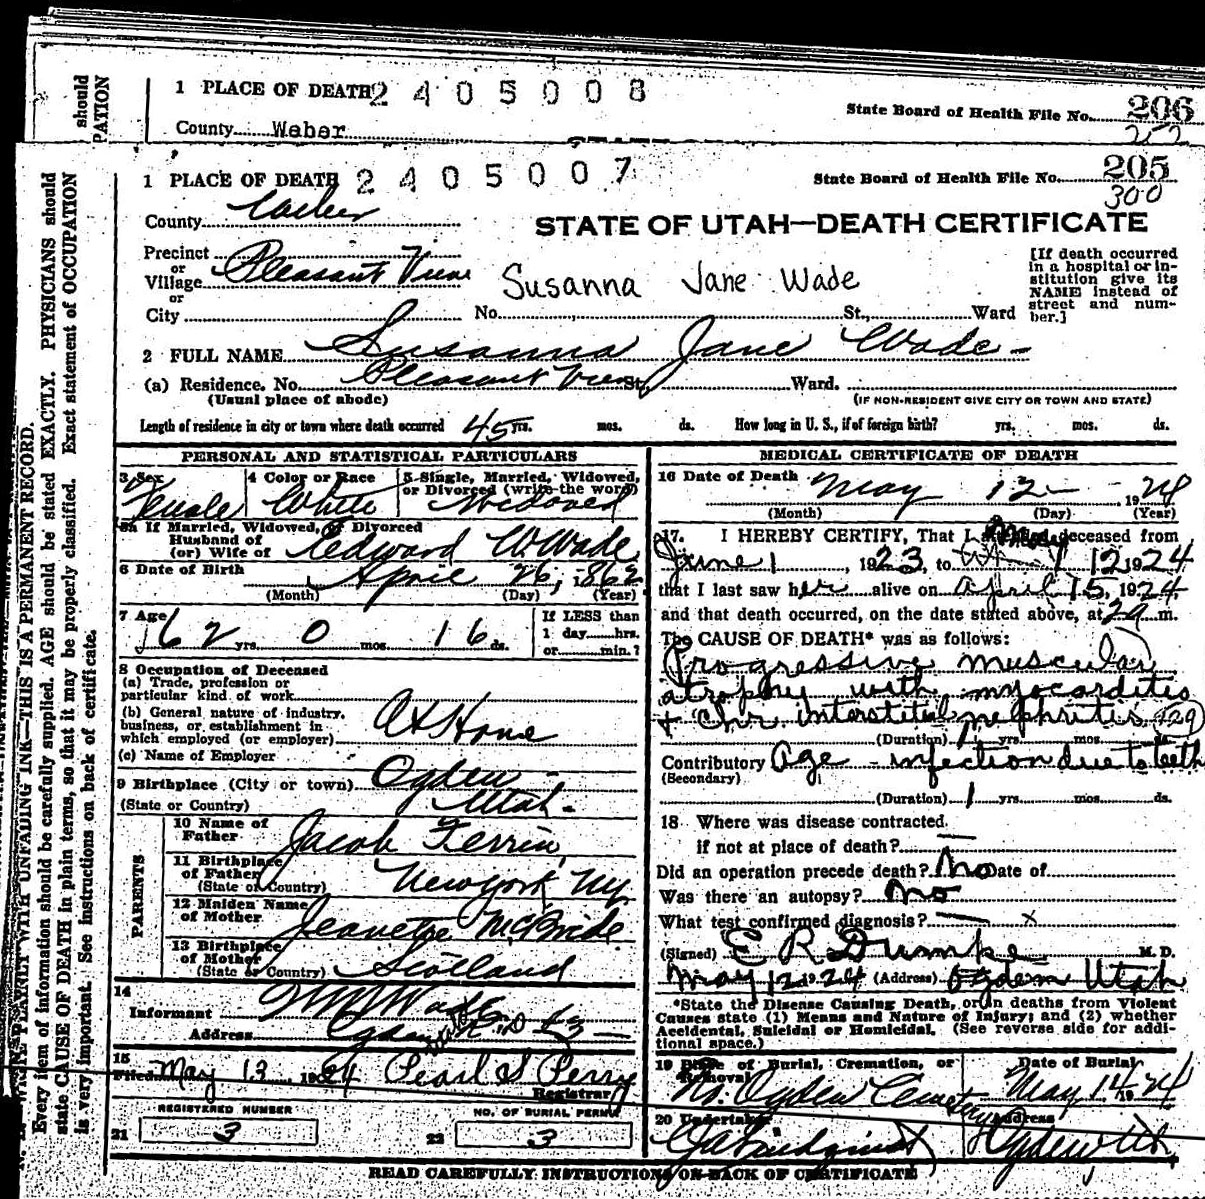 should
PATION
1 PLACE OF DEATH 2405008
State Board of Health File No. 206
County Weber
252
1 PLACE OF DEATH 2405007
State Board of Health File No. 205
300
County Weber
STATE OF UTAH—DEATH CERTIFICATE
Precinct
or
Village Pleasant View
or
City
Susanna Jane Wade
No. St., Ward
[If death occurred
in a hospital or in-
stitution give its
NAME instead of
street and num-
ber.]
2 FULL NAME Susanna Jane Wade
(a) Residence. No. Pleasant View St. Ward.
(Usual place of abode)
(IF NON-RESIDENT GIVE CITY OR TOWN AND STATE)
Length of residence in city or town where death occurred 45 yrs. mos. ds. How long in U. S., if of foreign birth? yrs. mos. ds.
PERSONAL AND STATISTICAL PARTICULARS
3 Sex Female
4 Color or Race White
5 Single, Married, Widowed,
or Divorced (write the word)
Widowed
5a If Married, Widowed, or Divorced
Husband of
(or) Wife of Edward W. Wade
6 Date of Birth April 26, 1862
(Month) (Day) (Year)
7 Age 62 yrs. 0 mos. 16 ds.
If LESS than
1 day hrs.
or min.?
8 Occupation of Deceased
(a) Trade, profession or
particular kind of work
(b) General nature of industry,
business, or establishment in
which employed (or employer) At Home
(c) Name of Employer
9 Birthplace (City or town) Ogden
(State or Country) Utah
PARENTS
10 Name of
Father Jacob Ferrin
11 Birthplace
of Father
(State or Country) New York, NY
12 Maiden Name
of Mother Jeanette McBride
13 Birthplace
of Mother
(State or Country) Scotland
14
Informant Wade
Address Ogden Utah R.D #3
15
Filed May 13, 1924 Pearl S Perry
Registrar
REGISTERED NUMBER
21 3
NO. OF BURIAL PERMIT
22 3
MEDICAL CERTIFICATE OF DEATH
16 Date of Death May 12 1924
(Month) (Day) (Year)
17. I HEREBY CERTIFY, That I attended deceased from
June 1, 1923, to May 12 1924
that I last saw her alive on April 15, 1924
and that death occurred, on the date stated above, at 2a m.
The CAUSE OF DEATH* was as follows:
Progressive muscular
atrophy with myocarditis
+ Chr interstitial nephritis (129)
(Duration) 1 yrs. mos. ds.
Contributory Age - infection due to teeth
(Secondary)
(Duration) 1 yrs. mos. ds.
18 Where was disease contracted
if not at place of death?
Did an operation precede death? No Date of
Was there an autopsy? No
What test confirmed diagnosis? x
(Signed) E R Dumke M. D.
May 12 1924 (Address) Ogden Utah
*State the Disease Causing Death, or in deaths from Violent
Causes state (1) Means and Nature of Injury; and (2) whether
Accidental, Suicidal or Homicidal. (See reverse side for addi-
tional space.)
19 Place of Burial, Cremation, or
Removal
No. Ogden Cemetery
Date of Burial
May 14 1924
20 Undertaker
Address
Ogden, Ut.
READ CAREFULLY INSTRUCTIONS ON BACK OF CERTIFICATE
WRITE PLAINLY WITH UNFADING INK—THIS IS A PERMANENT RECORD.
Every item of information should be carefully supplied. AGE should be stated EXACTLY. PHYSICIANS should
state CAUSE OF DEATH in plain terms, so that it may be properly classified. Exact statement of OCCUPATION
is very important. See instructions on back of certificate.